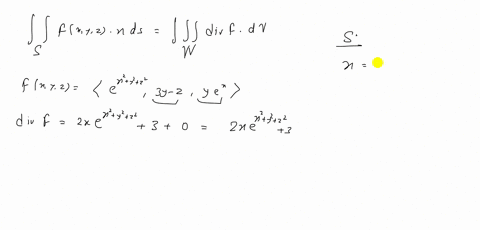 ∬_S f(x,y,z)·n ds = ∭_W div f · dV
S:
x =
f(x,y,z) = ⟨ e^{x²+y²+z²}, 3y-z, y e^x ⟩
div f = 2x e^{x²+y²+z²} + 3 + 0 = 2x e^{x²+y²+z²} + 3